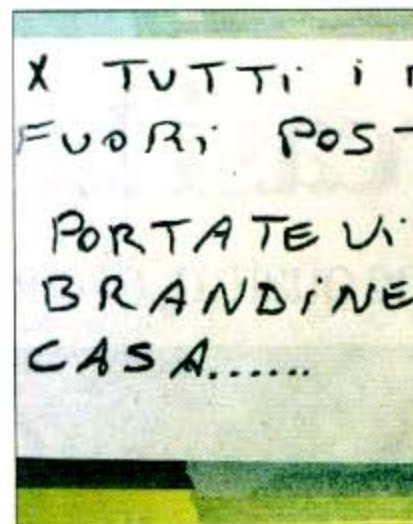 X TUTTi i
FUORi POST
PORTATEVi
BRANDiNE
CASA......